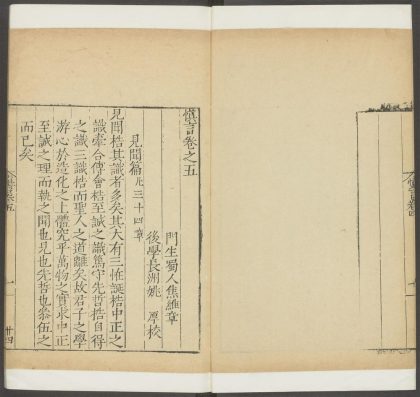 慎言卷之五
門生蜀人焦維章
後學長洲姚 厚校
見聞篇凡三十四章
見聞梏其識者多矣其大有三怪誕梏中正之
識牽合傅會梏至誠之識篤守先哲梏自得
之識三識梏而聖人之道離矣故君子之學
游心於造化之上體究乎萬物之實求中正
至誠之理而執之聞也見也先哲也參伍之
而已矣